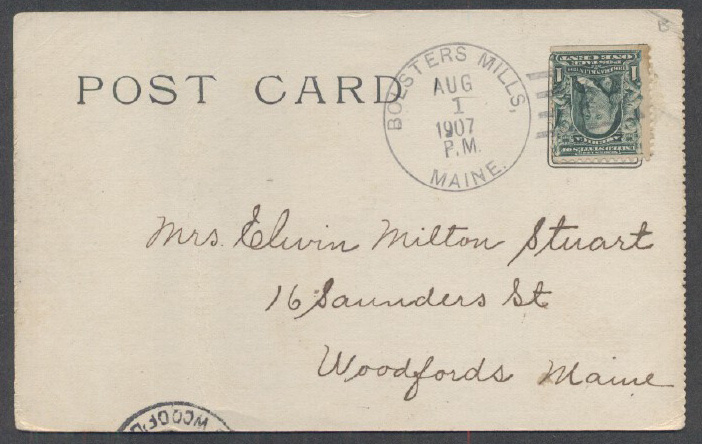 POST CARD
BOLSTERS MILLS,
AUG
1
1907
P.M.
MAINE.
1 ONE CENT 1
Mrs. Elwin Milton Stuart
16 Saunders St
Woodfords Maine
B